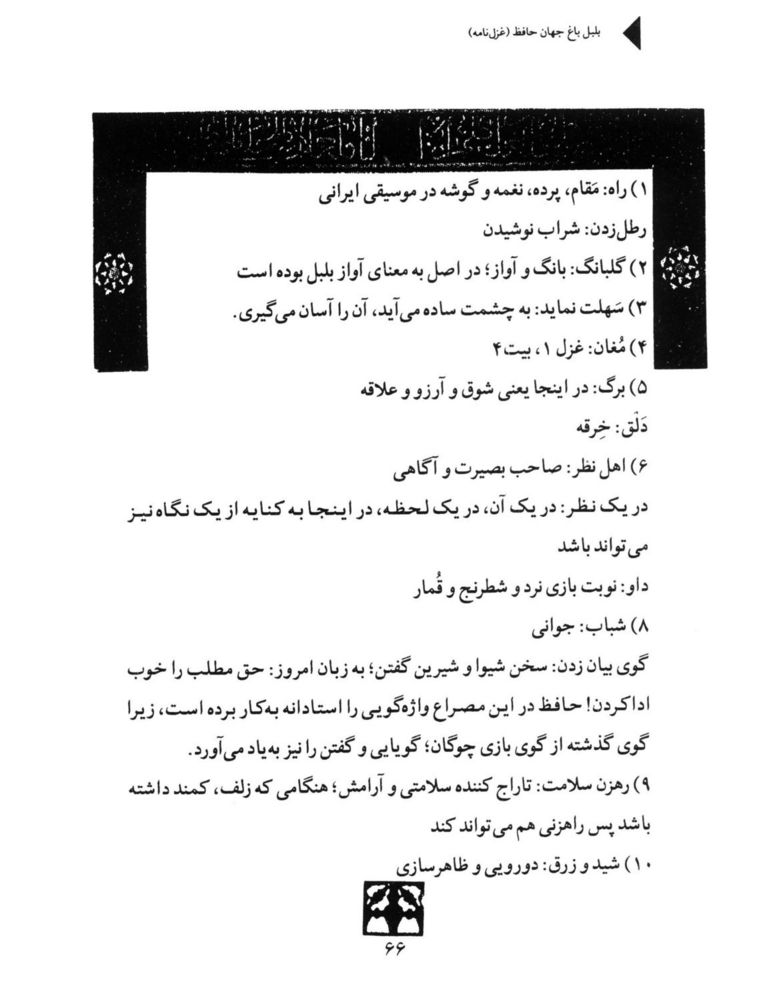 بلبل باغ جهان حافظ (غزل‌نامه)
۱) راه: مَقام، پرده، نغمه و گوشه در موسیقی ایرانی
رطل‌زدن: شراب نوشیدن
۲) گلبانگ: بانگ و آواز؛ در اصل به معنای آواز بلبل بوده است
۳) سَهلت نماید: به چشمت ساده می‌آید، آن را آسان می‌گیری.
۴) مُغان: غزل ۱، بیت۴
۵) برگ: در اینجا یعنی شوق و آرزو و علاقه
دَلْق: خِرقه
۶) اهل نظر: صاحب بصیرت و آگاهی
در یک نظر: در یک آن، در یک لحظه، در اینجا به کنایه از یک نگاه نیز
می‌تواند باشد
داو: نوبت بازی نرد و شطرنج و قُمار
۸) شباب: جوانی
گوی بیان زدن: سخن شیوا و شیرین گفتن؛ به زبان امروز: حق مطلب را خوب
اداکردن! حافظ در این مصراع واژه‌گویی را استادانه به‌کار برده است، زیرا
گوی گذشته از گوی بازی چوگان؛ گویایی و گفتن را نیز به‌یاد می‌آورد.
۹) رهزن سلامت: تاراج کننده سلامتی و آرامش؛ هنگامی که زلف، کمند داشته
باشد پس راهزنی هم می‌تواند کند
۱۰) شید و زرق: دورویی و ظاهرسازی
۶۶